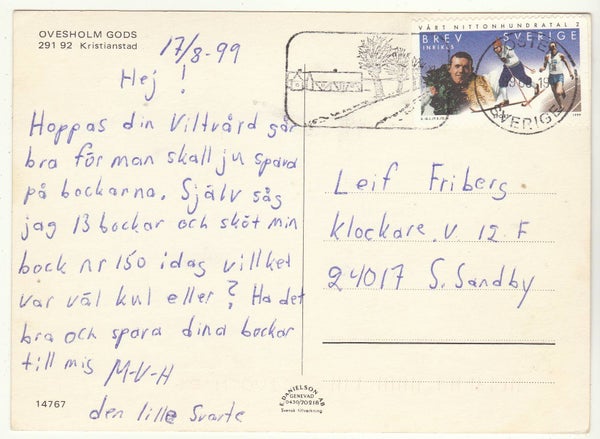 OVESHOLM GODS
291 92 Kristianstad
17/8-99
Hej!
Hoppas din Viltvård går
bra för man skall ju spara
på bockarna. Själv såg
jag 13 bockar och sköt min
bock nr 150 idag villket
var väl kul eller? Ha det
bra och spara dina bockar
till mig M-V-H
den lille Svarte
14767
VÅRT NITTONHUNDRATAL 2
BREV SVERIGE
INRIKES
POSTEN
SVERIGE
Leif Friberg
Klockare.v. 12 F
24017 S. Sandby
E. DANIELSON AB
GENEVAD
0430/70218
Svensk tillverkning